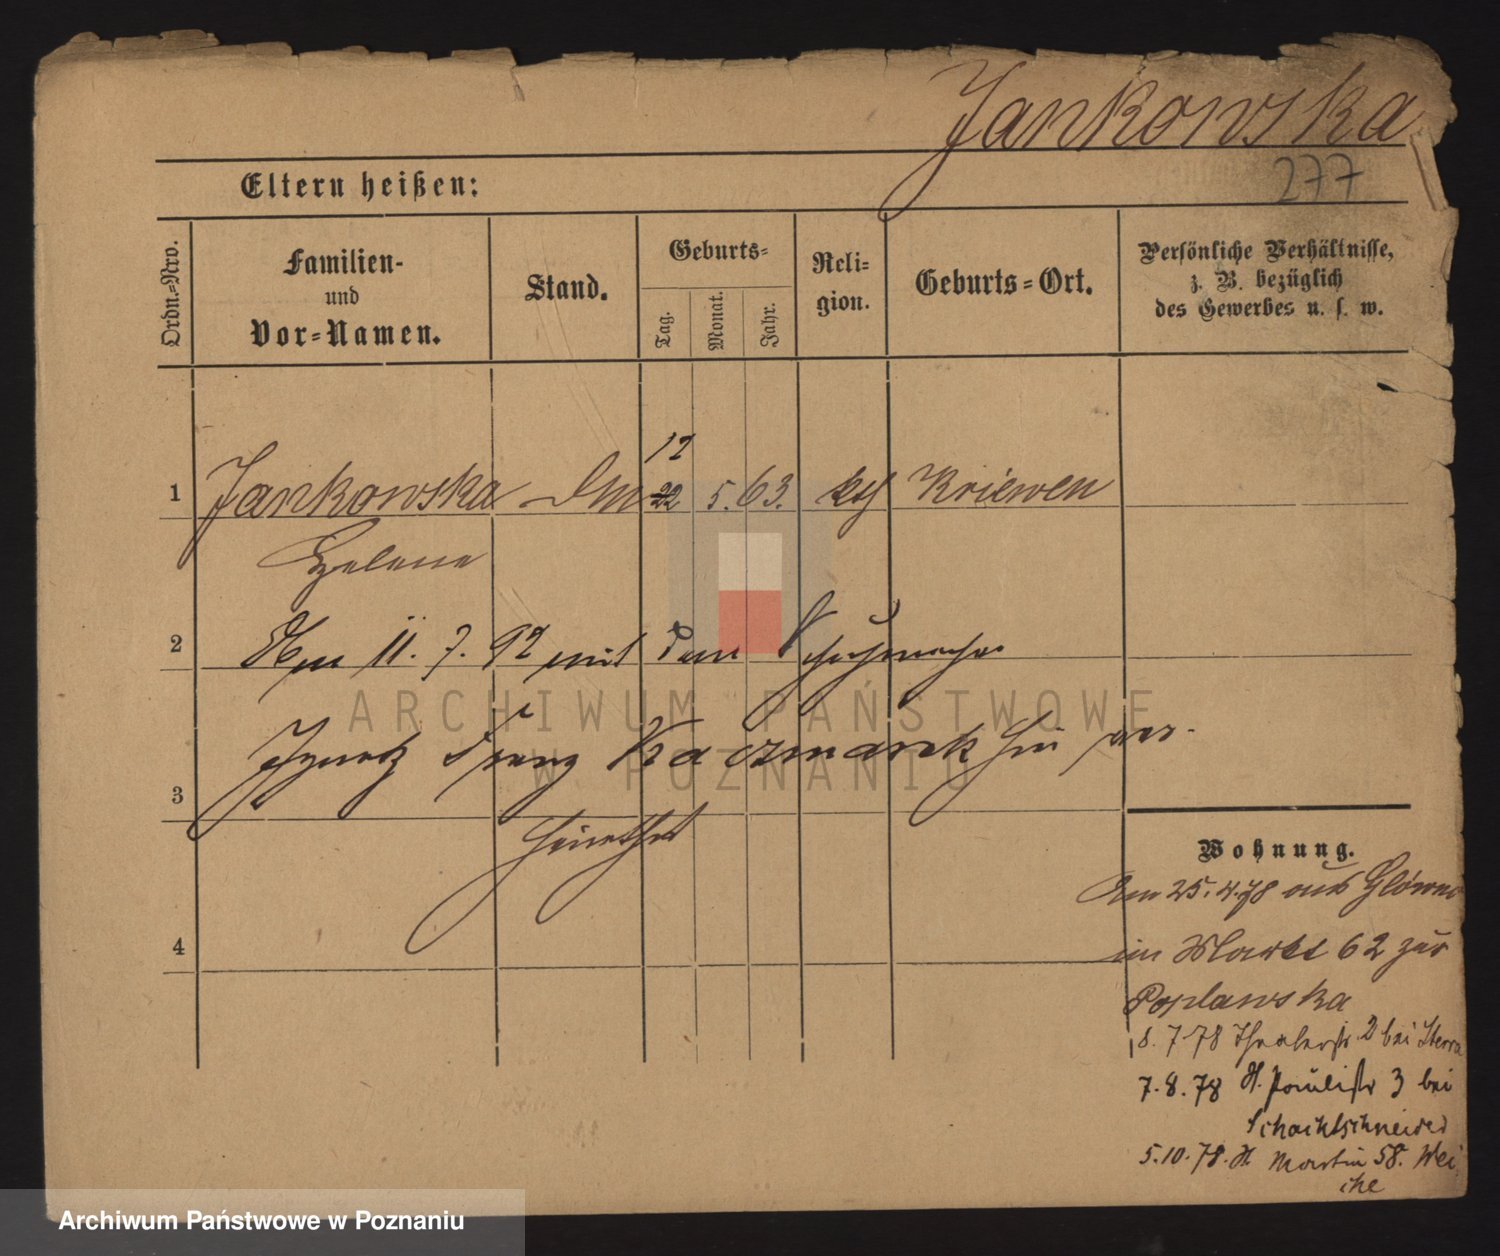 Jankowska
277
Eltern heißen:
Ordn.-Nro.
Familien-
und
Vor-Namen.
Stand.
Geburts-
Tag.
Monat.
Jahr.
Reli-
gion.
Geburts-Ort.
Persönliche Verhältnisse,
z. B. bezüglich
des Gewerbes u. s. w.
12
1 Jankowska 22 5. 63. kth Kriewen
Helene
2 Am 11. 7. 92 mit dem Schuhmacher
Ignatz Franz Kaczmarek hier ver-
3
heirathet
Wohnung.
Am 25.4.78 aus Glówno
4
im Markt 62 zur
Poplawska
8. 7 78 Theaterstr 2 bei
7. 8. 78 H. Paulistr 3 bei
Schachtschneider
5. 10. 78. H. Martin 58. Wei
che
ARCHIWUM PAŃSTWOWE
W POZNANIU
Archiwum Państwowe w Poznaniu